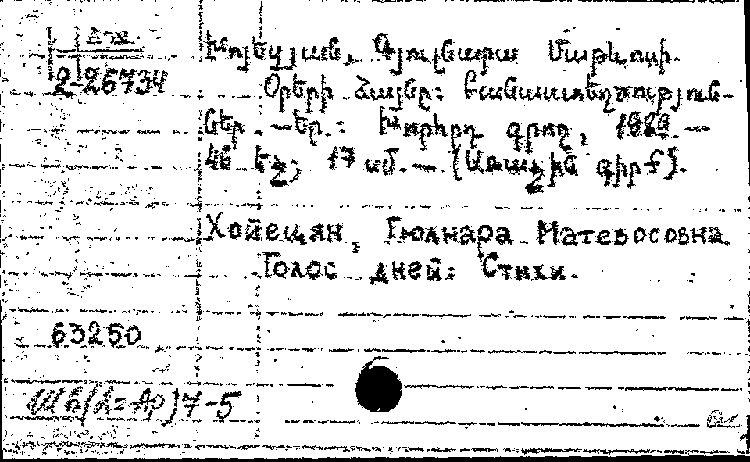 2-26734
Խոյեցյան, Գյուլնարա Մաթևոսի.
Օրերի ձայնը: Բանաստեղծություն-
ներ. -Եր.: Խորհրդ. գրող, 1989. —
46 էջ; 17 սմ. — (Առաջին գիրք).
Хойецян, Гюлнара Матевосовна.
Голос дней: Стихи.
63250
7-5